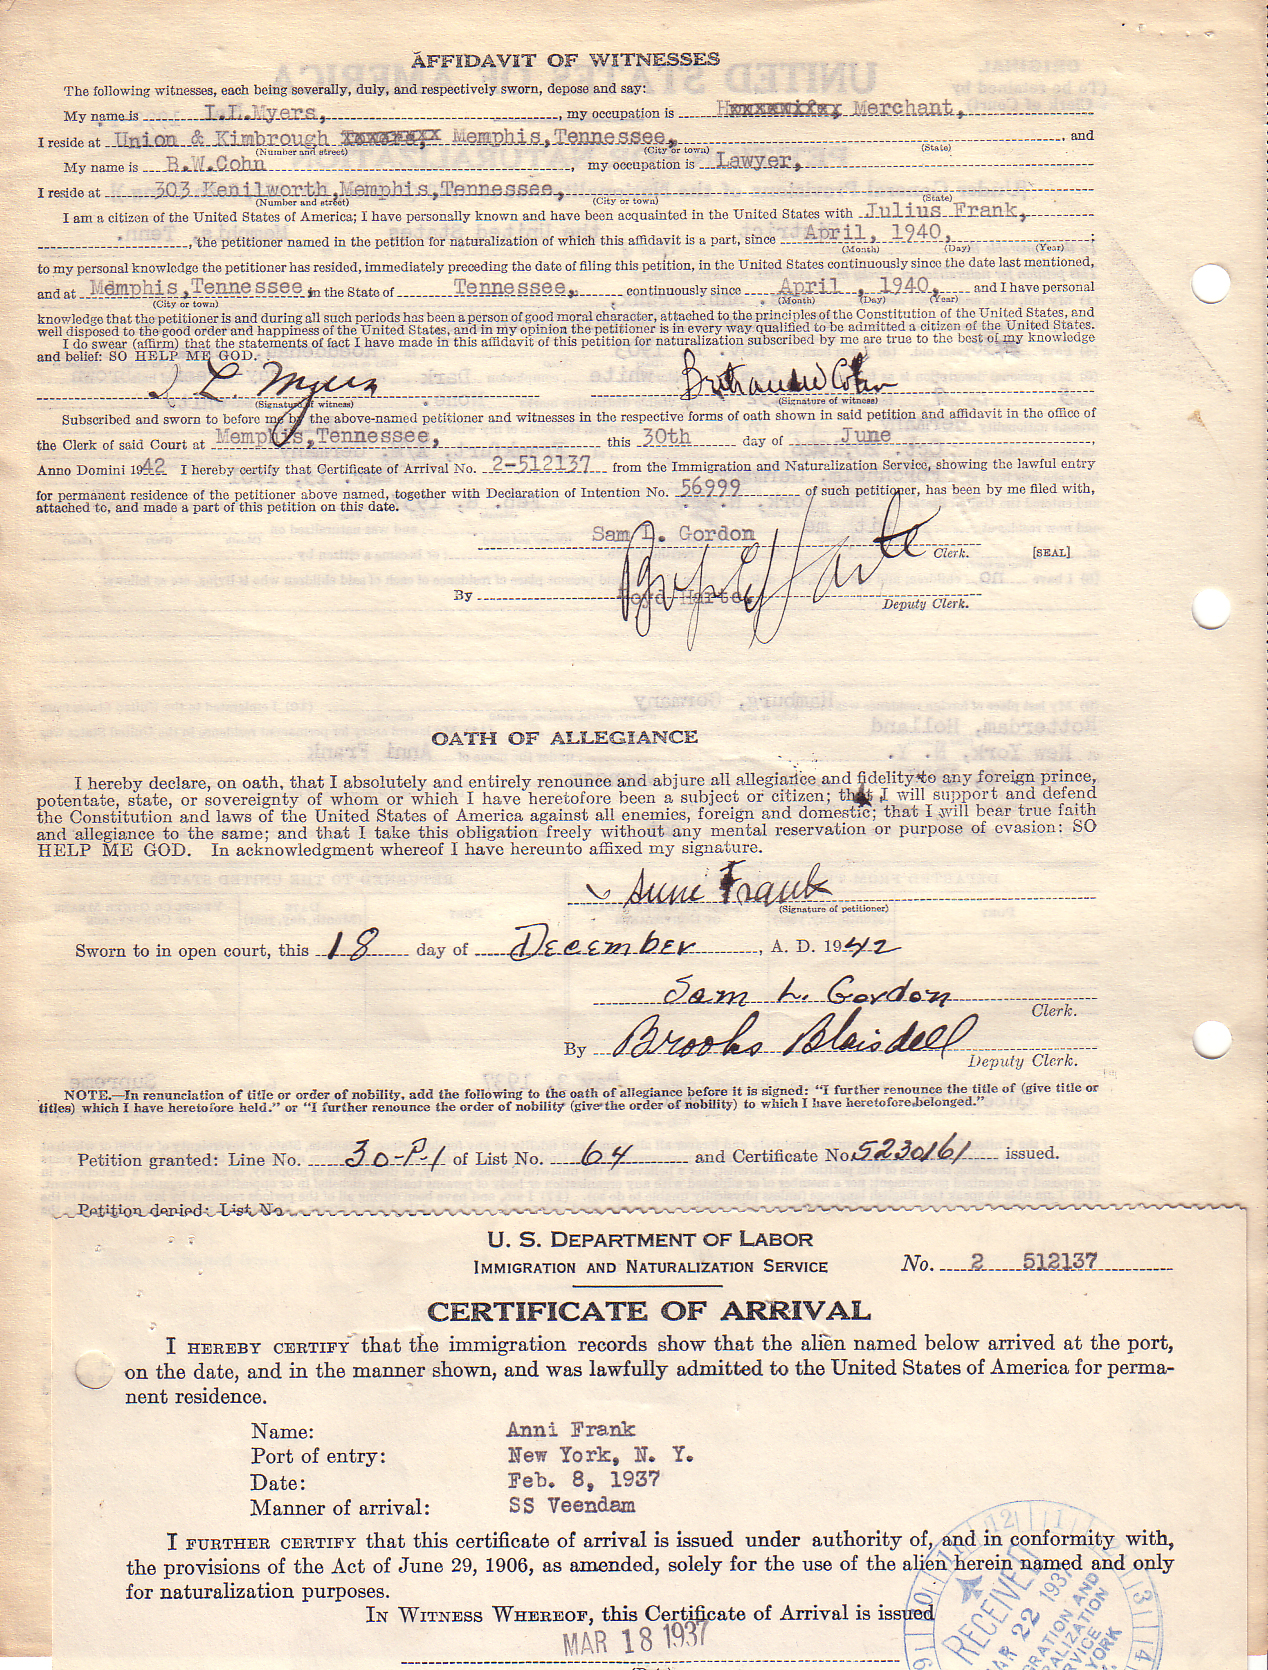 AFFIDAVIT OF WITNESSES
The following witnesses, each being severally, duly, and respectively sworn, depose and say:
My name is I.L.Myers, , my occupation is Merchant,
I reside at Union & Kimbrough Memphis,Tennessee, , and
(Number and street) (City or town) (State)
My name is B.W.Cohn , my occupation is Lawyer,
I reside at 303 Kenilworth,Memphis,Tennessee,
(Number and street) (City or town) (State)
I am a citizen of the United States of America; I have personally known and have been acquainted in the United States with Julius Frank,
, the petitioner named in the petition for naturalization of which this affidavit is a part, since April, 1940, ;
(Month) (Day) (Year)
to my personal knowledge the petitioner has resided, immediately preceding the date of filing this petition, in the United States continuously since the date last mentioned,
and at Memphis,Tennessee, in the State of Tennessee, continuously since April , 1940, and I have personal
(City or town) (Month) (Day) (Year)
knowledge that the petitioner is and during all such periods has been a person of good moral character, attached to the principles of the Constitution of the United States, and
well disposed to the good order and happiness of the United States, and in my opinion the petitioner is in every way qualified to be admitted a citizen of the United States.
I do swear (affirm) that the statements of fact I have made in this affidavit of this petition for naturalization subscribed by me are true to the best of my knowledge
and belief: SO HELP ME GOD.
I L. Myers Bertrand W Cohn
(Signature of witness) (Signature of witness)
Subscribed and sworn to before me by the above-named petitioner and witnesses in the respective forms of oath shown in said petition and affidavit in the office of
the Clerk of said Court at Memphis,Tennessee, this 30th day of June ,
Anno Domini 1942 I hereby certify that Certificate of Arrival No. 2-512137 from the Immigration and Naturalization Service, showing the lawful entry
for permanent residence of the petitioner above named, together with Declaration of Intention No. 56999 of such petitioner, has been by me filed with,
attached to, and made a part of this petition on this date.
Sam L. Gordon
Clerk. [SEAL]
By
Deputy Clerk.
OATH OF ALLEGIANCE
I hereby declare, on oath, that I absolutely and entirely renounce and abjure all allegiance and fidelity to any foreign prince,
potentate, state, or sovereignty of whom or which I have heretofore been a subject or citizen; that I will support and defend
the Constitution and laws of the United States of America against all enemies, foreign and domestic; that I will bear true faith
and allegiance to the same; and that I take this obligation freely without any mental reservation or purpose of evasion: SO
HELP ME GOD. In acknowledgment whereof I have hereunto affixed my signature.
Anni Frank
(Signature of petitioner)
Sworn to in open court, this 18 day of December , A. D. 1942
Sam L. Gordon
Clerk.
By Brooks Blaisdell
Deputy Clerk.
NOTE.—In renunciation of title or order of nobility, add the following to the oath of allegiance before it is signed: "I further renounce the title of (give title or
titles) which I have heretofore held." or "I further renounce the order of nobility (give the order of nobility) to which I have heretofore belonged."
Petition granted: Line No. 30-P-1 of List No. 64 and Certificate No. 5230161 issued.
Petition denied: List No.
U. S. DEPARTMENT OF LABOR
IMMIGRATION AND NATURALIZATION SERVICE
No. 2 512137
CERTIFICATE OF ARRIVAL
I HEREBY CERTIFY that the immigration records show that the alien named below arrived at the port,
on the date, and in the manner shown, and was lawfully admitted to the United States of America for perma-
nent residence.
Name: Anni Frank
Port of entry: New York, N. Y.
Date: Feb. 8, 1937
Manner of arrival: SS Veendam
I FURTHER CERTIFY that this certificate of arrival is issued under authority of, and in conformity with,
the provisions of the Act of June 29, 1906, as amended, solely for the use of the alien herein named and only
for naturalization purposes.
IN WITNESS WHEREOF, this Certificate of Arrival is issued
MAR 18 1937
RECEIVED
22 1937